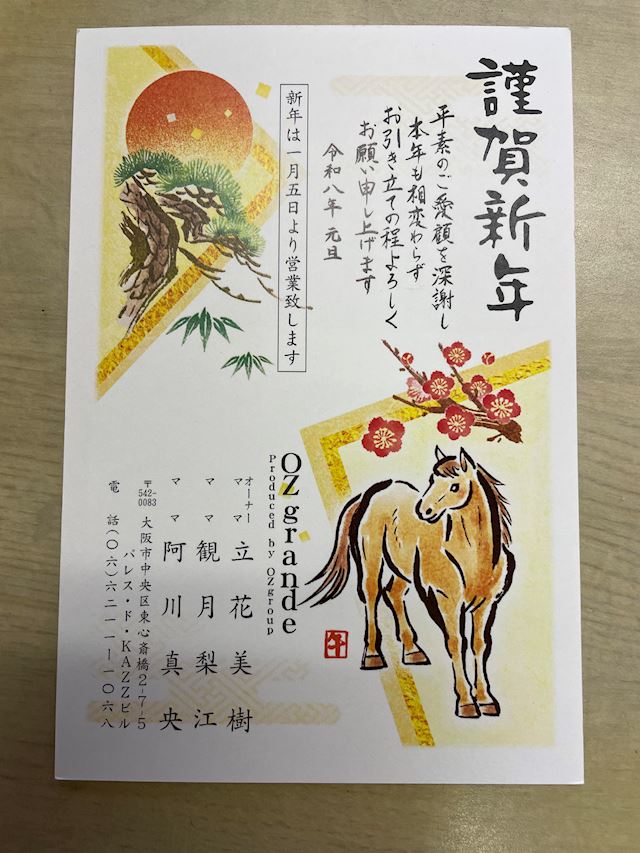 謹賀新年
平素のご愛顧を深謝し
本年も相変わらず
お引き立ての程よろしく
お願い申し上げます
令和八年 元旦
新年は一月五日より営業致します
OZ grande
Produced by OZgroup
オーナーママ 立花美樹
ママ 観月梨江
ママ 阿川真央
〒542-0083 大阪市中央区東心斎橋2-7-5
パレス・ド・KAZZビル
電話(〇六)六二一一一一〇六八
午